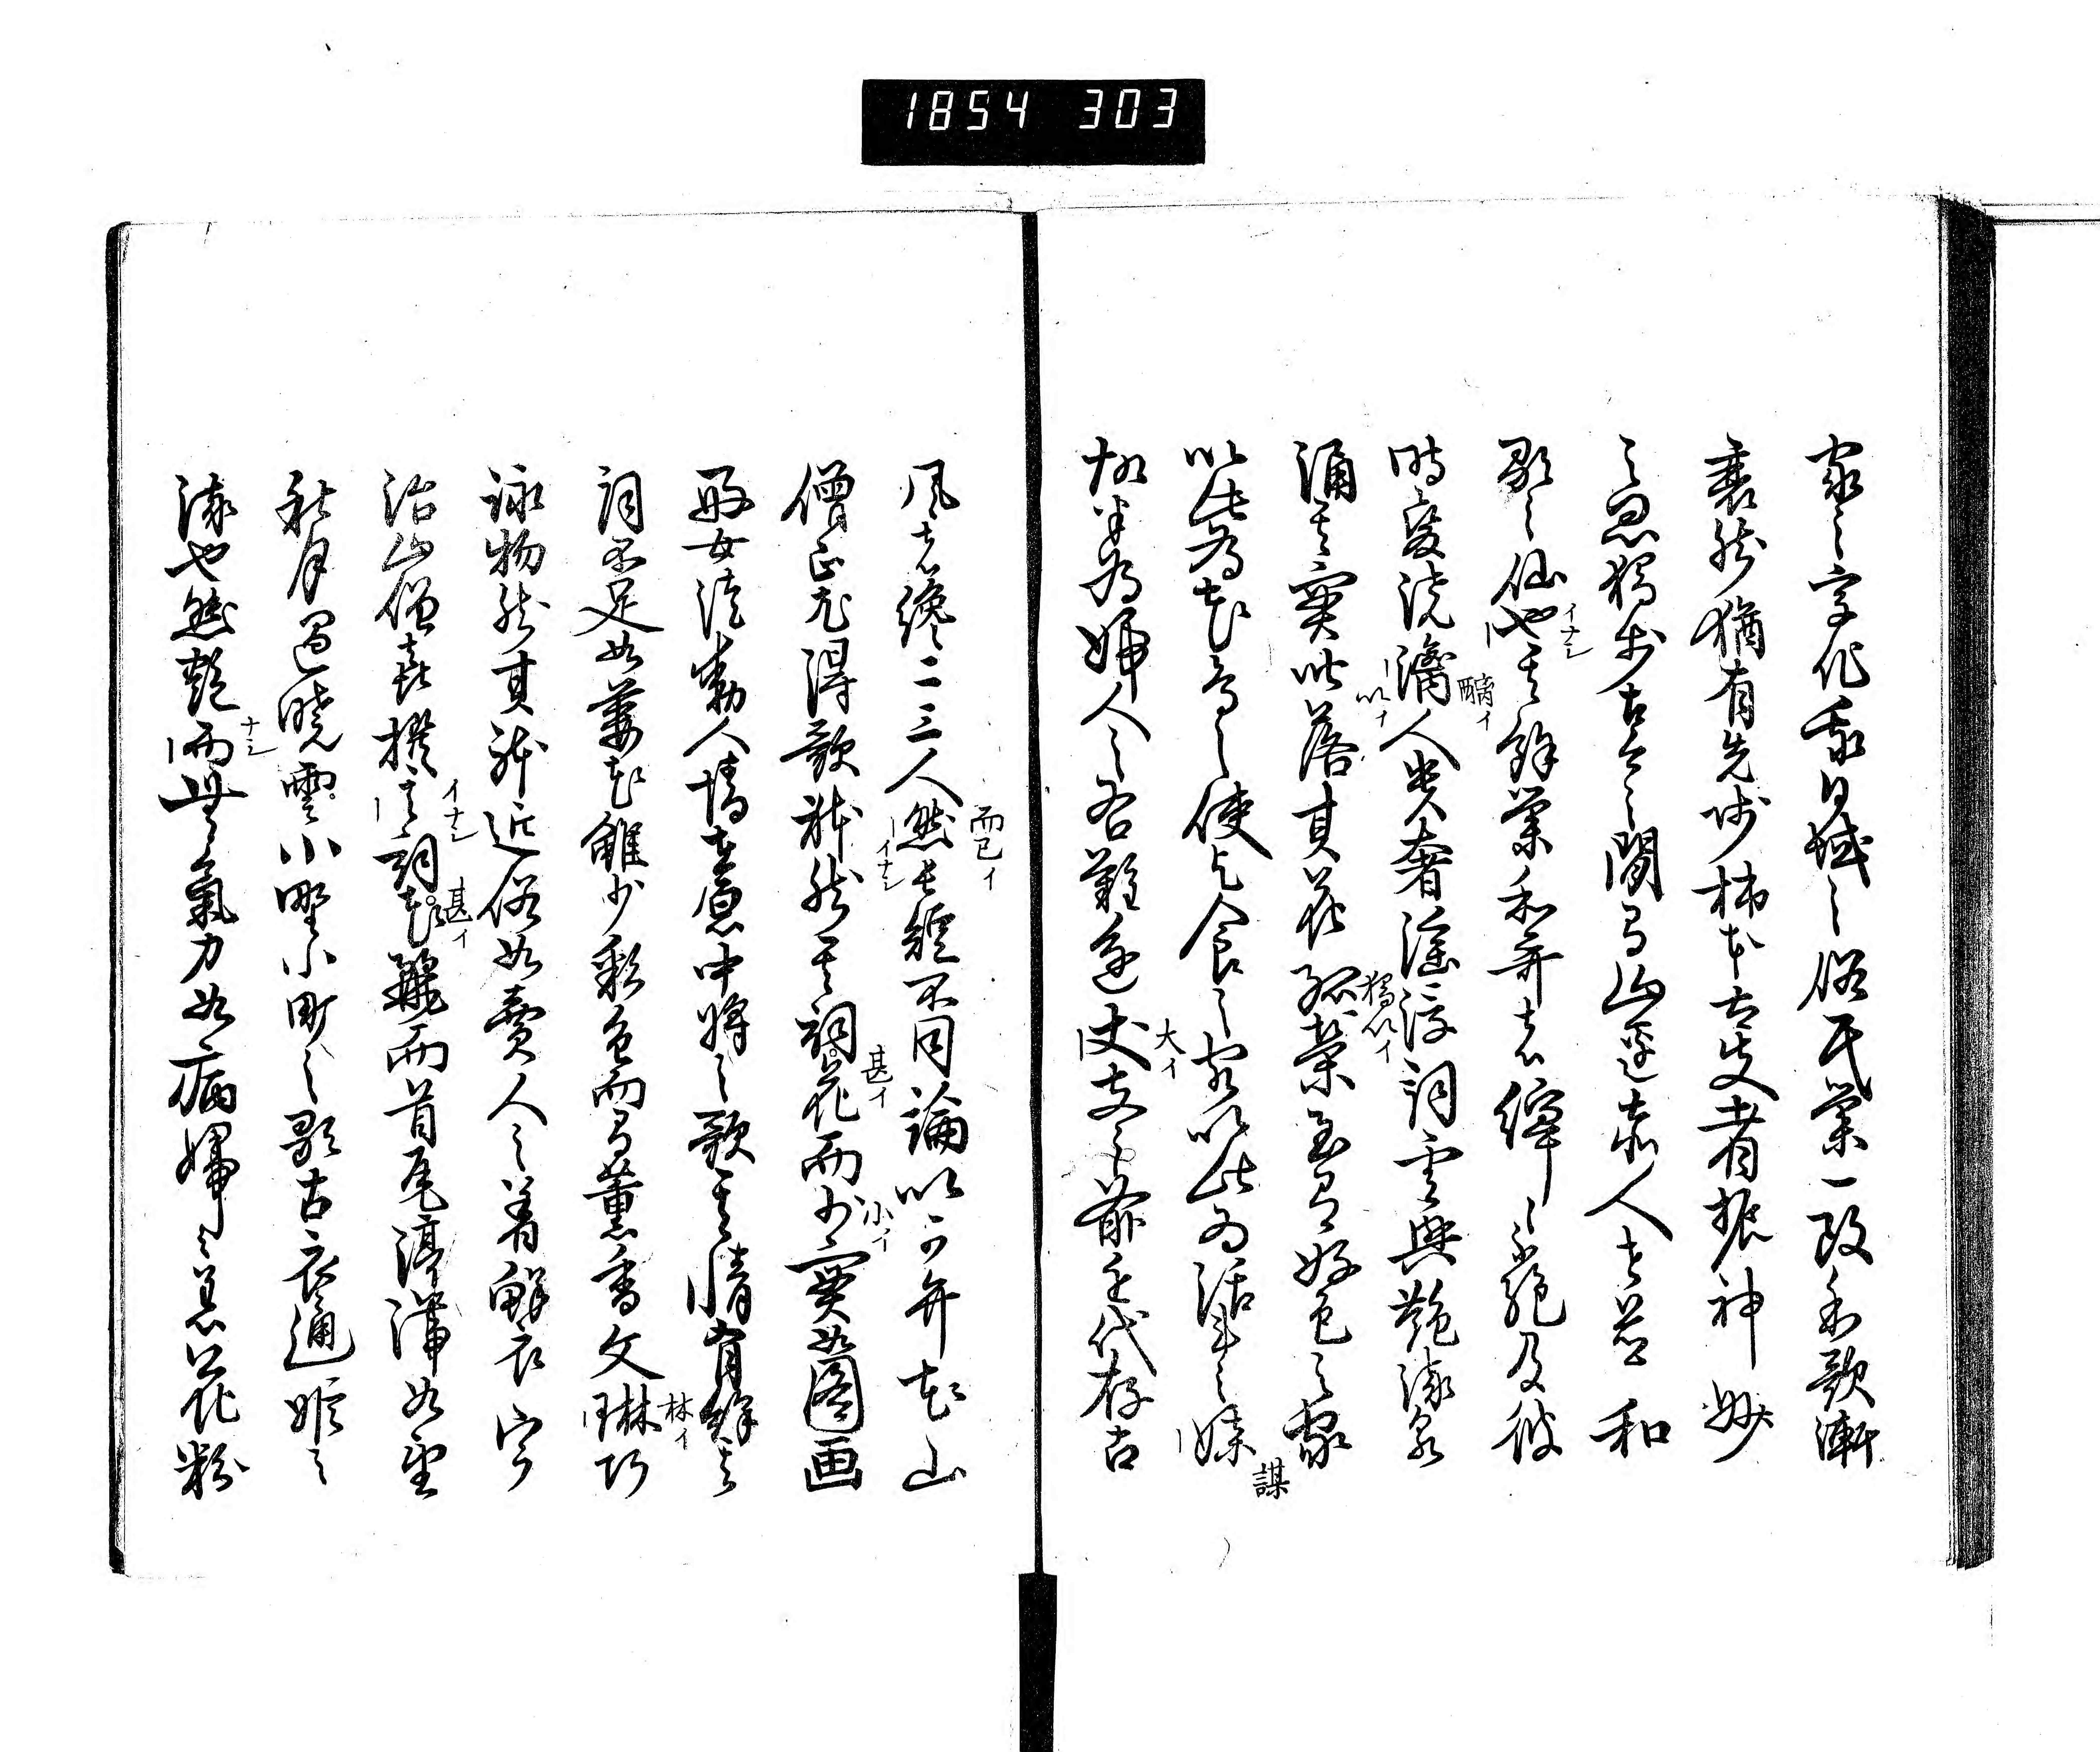 1854 303
家之字化我日域之俗民業一改和歌漸
衰然猶有先師柿本大夫者振神妙
之思獨歩古今之間有山邊赤人者並和
歌之仙也其餘業和哥者綿々不絶及彼
イナシ
時変澆漓人貴奢淫浮詞雲興艶流泉
醨イ
涌其實皆落其花孤榮至有好色之家
以イ
獨以イ
以此為花鳥之使乞食之客以此為活計之媒
謀
故半為婦人之右難進丈夫之前近代存古
大イ
風者纔二三人然長短不同論以可弁花山
而已イ
僧正尤得歌躰然其詞花而少實如圖画
イナシ
甚イ
小イ
好女徒動人情在原中將之歌其情有餘其
詞不足如萎花雖少彩色而有薫香文琳巧
林イ
詠物然其躰近俗如賣人之着鮮衣宇
治山僧喜撰其詞花麗而首尾渟滞如望
イナシ
甚イ
秋月遇曉雲小野小町之歌古衣通姫之
流也然艶而無氣力如病婦之着花粉
ナシ